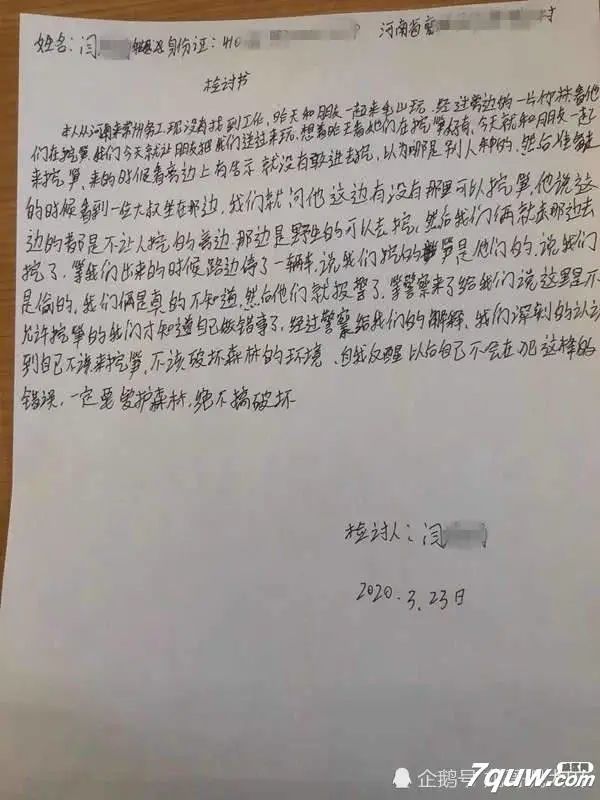 姓名：闫 身份证：410 河南省
检讨书
本人从河南来常州务工现没有找到工作，昨天和朋友一起来玩，经过旁边的一片竹林看他
们在挖笋，我们今天就让朋友把我们送过来玩，想着昨天看她们在挖笋好有，今天就和朋友一起
来挖笋，来的时候看旁边上有告示就没有敢进去挖，以为哪是别人种的，然后准备走
的时候看到一些大叔坐在那边，我们就问他这边有没有那里可以挖笋，他说这
边的都是不让人挖的旁边那边是野生的可以去挖，然后我们俩就去那边去
挖了，等我们出来的时候，路边停了一辆车，说我们挖的笋是他们的，说我们
是偷的，我们俩是真的不知道，然后他们就报警了，等警察来了给我们说这里是不
允许挖笋的我们才知道自己做错事了，经过警察给我们的解释，我们深刻的认识
到自己不该来挖笋，不该破坏森林的环境，自我反醒以后自己不会在犯这样的
错误，一定要爱护森林，绝不搞破坏
检讨人：闫
2020.3.23日
企鹅号
7quw.com